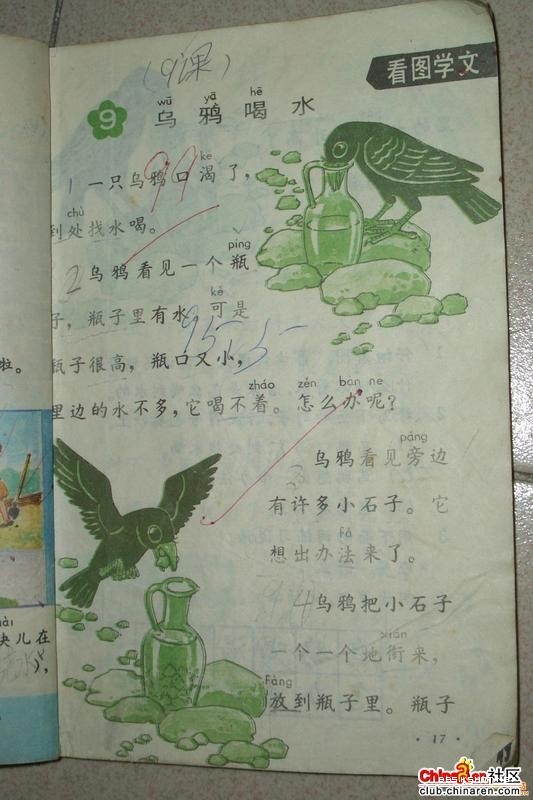 (9课)
看图学文
wū yā hē
9 乌鸦喝水
kě
1 一只乌鸦口渴了，
99
chù
到处找水喝。
píng
2 乌鸦看见一个瓶
kě
子，瓶子里有水，可是
95
瓶子很高，瓶口又小，
zháo zěn ban ne
里边的水不多，它喝不着。怎么办呢？
páng
3 乌鸦看见旁边
有许多小石子。它
fǎ
想出办法来了。
4 乌鸦把小石子
xián
一个一个地衔来，
Fàng
放到瓶子里。瓶子
·17·
啦。
块儿在
China人社区
club.chinaren.com